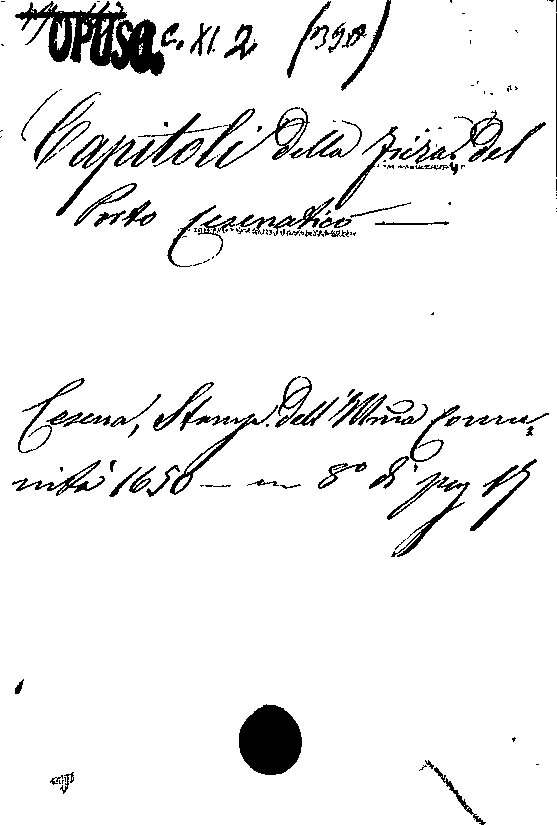 OPUSC. C. XI. 2 (390)
Capitoli della fiera del
Porto Cesenatico —
Cesena, Stamp. dell'Illma Comu-
nità 1650 — in 8° di pag 17